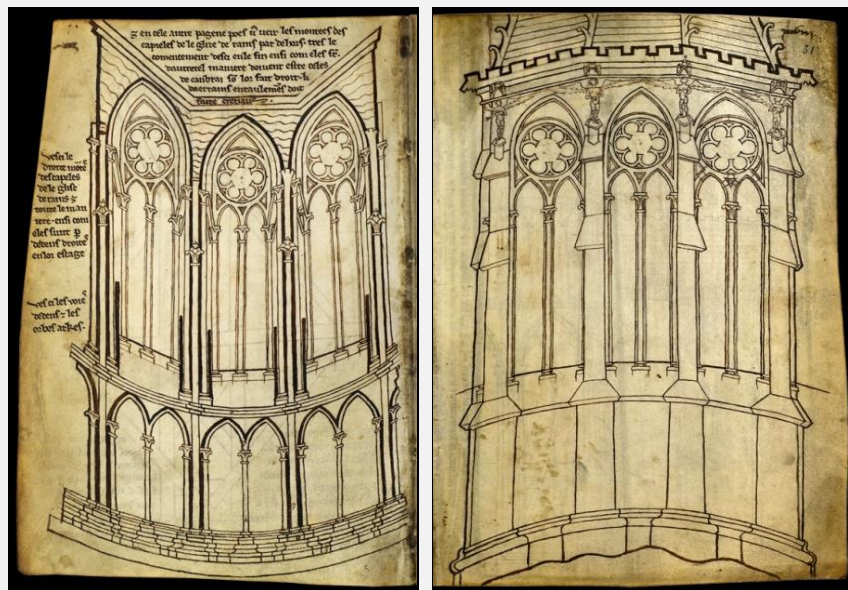 ⁊ en cele autre pagene poes vͥ veir les montees des
capieles de le glize de rains par dehors. tres le
comencement desci enle fin ensi com eles sūt.
dautretel maniere doivent estre celes
de canbrai sō lor fait droit. li
daerrains entaulemēs doit
faire cretiaus.
vesci le
droite mōtee
des capeles
de le glise
de rains ⁊
toute le man
iere. ensi com
eles sunt p
dedens droites
en lor estage
vesci les voies
dedens ⁊ les
orbes arkes.
31